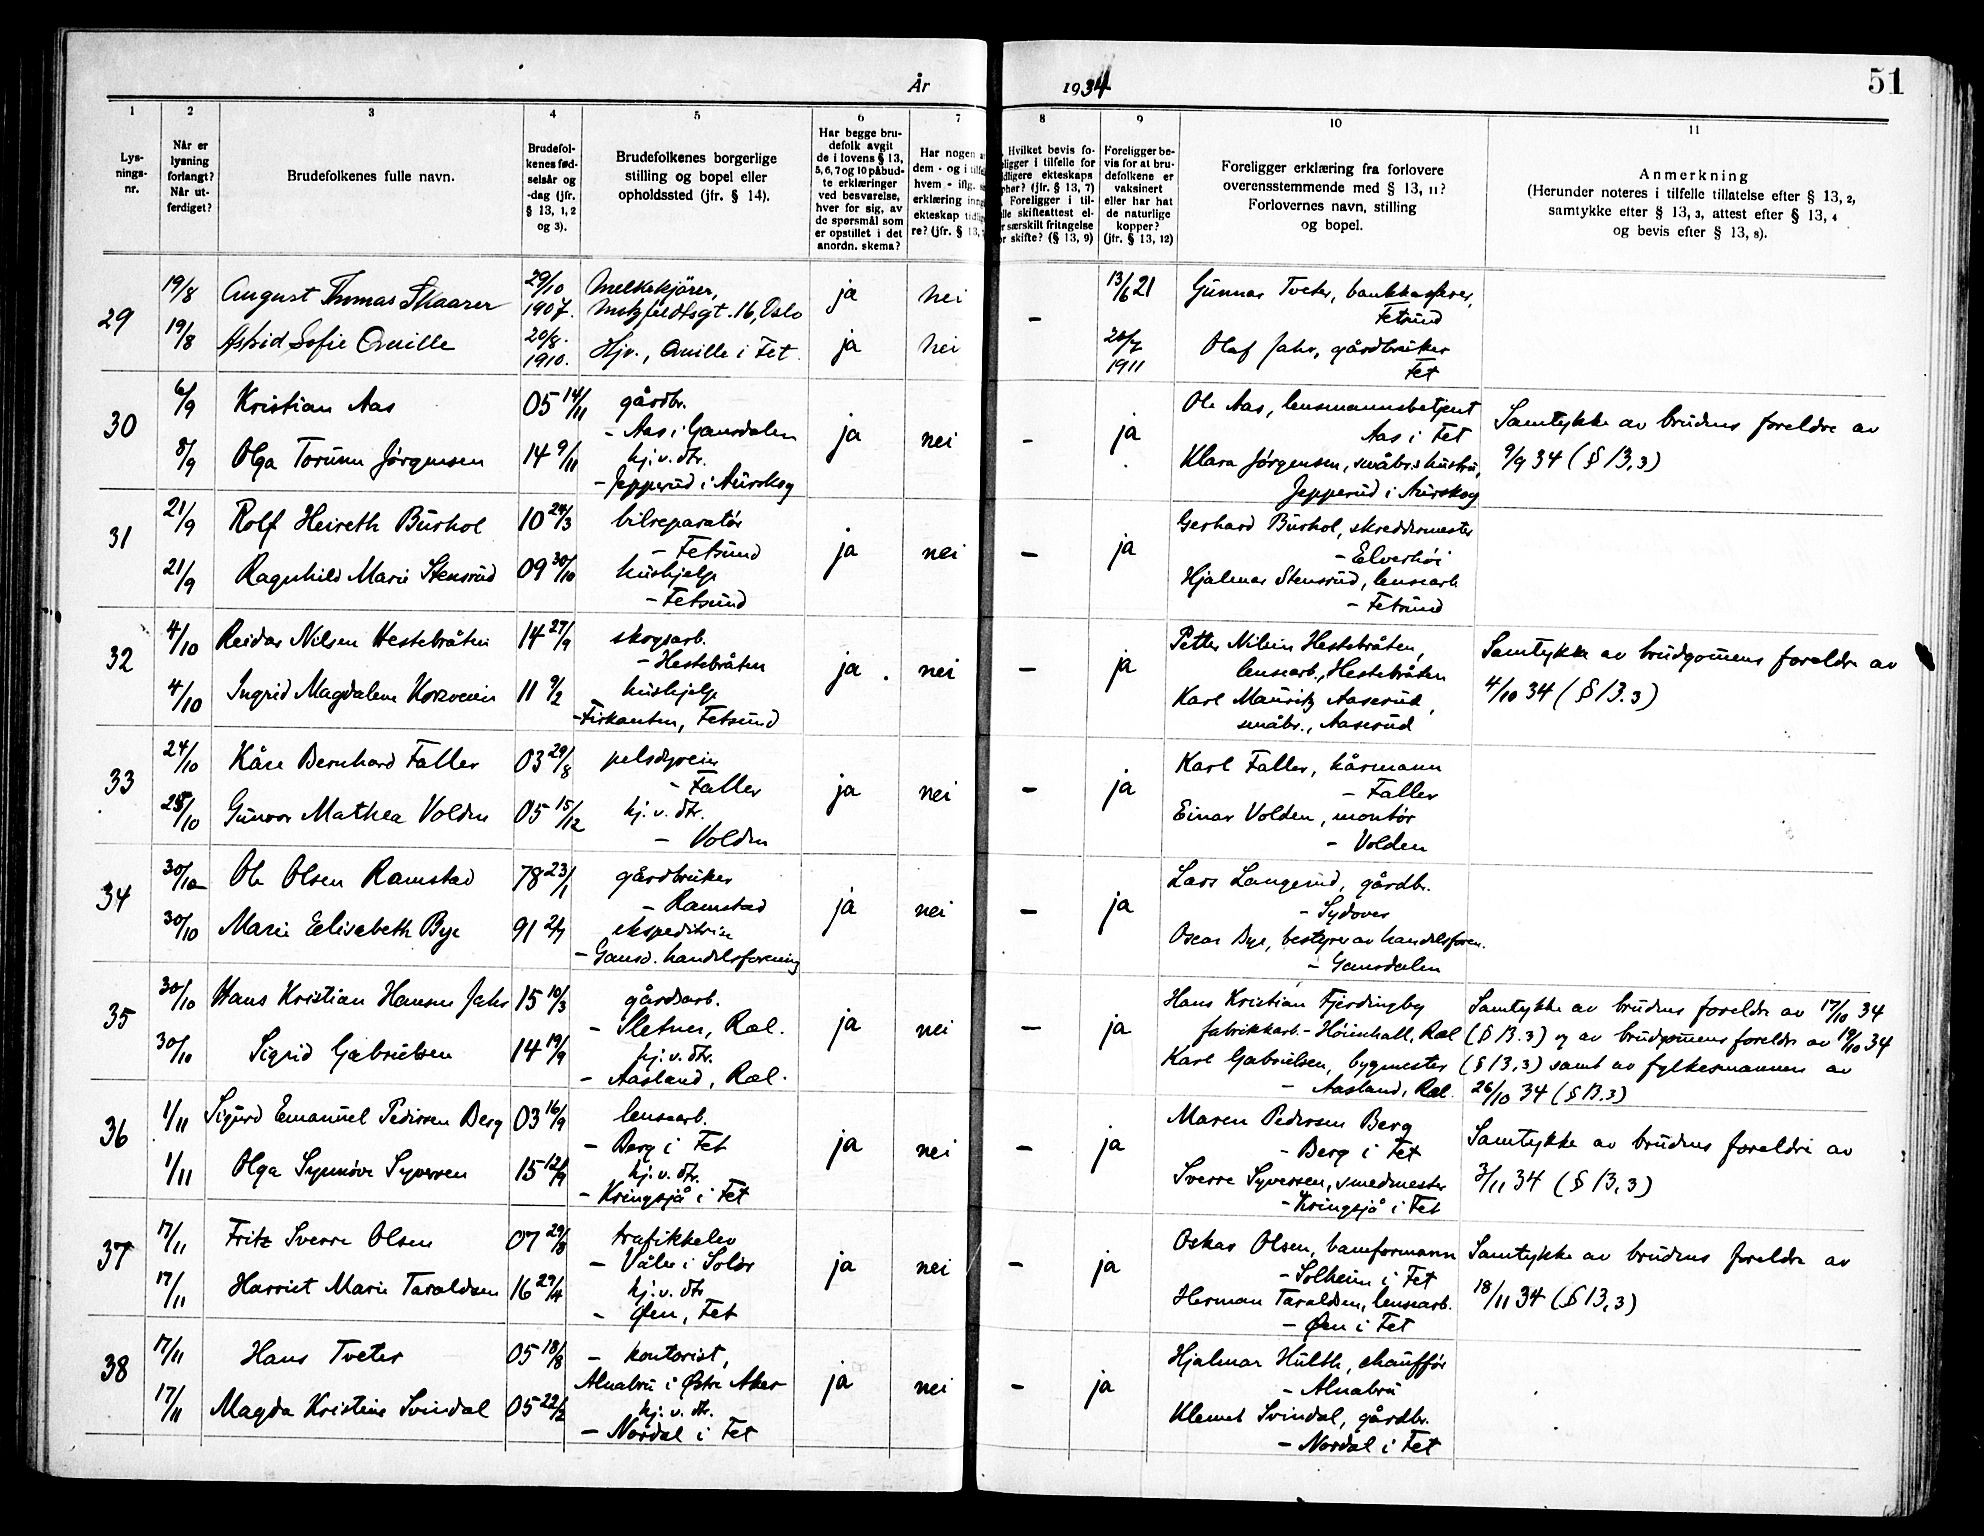 År 1934
51
1 2 3 4 5 6 7 8 9 10 11
Lys-
nings-
nr.
Når er
lysning
forlangt?
Når ut-
ferdiget?
Brudefolkenes fulle navn.
Brudefol-
kenes fød-
selsår og
-dag (jfr.
§ 13, 1, 2
og 3).
Brudefolkenes borgerlige
stilling og bopel eller
opholdssted (jfr. § 14).
Har begge bru-
defolk avgit
de i lovens § 13,
5, 6, 7 og 10 påbud-
te erklæringer
ved besvarelse,
hver for sig, av
de spørsmål som
er opstillet i det
anordn. skema?
Har nogen a
dem - og i tilfe
hvem - iflg. s
erklæring inng
ekteskap tidlig
re? (jfr. § 13,
Hvilket bevis fo-
ligger i tilfelle for
idligere ekteskaps
phør? (jfr. § 13, 7)
Foreligger i til-
lle skifteattest el-
r særskilt fritagelse
r skifte? (§ 13, 9)
Foreligger be-
vis for at bru-
defolkene er
vaksinert
eller har hat
de naturlige
kopper?
(jfr. § 13, 12)
Foreligger erklæring fra forlovere
overensstemmende med § 13, 11?
Forlovernes navn, stilling
og bopel.
Anmerkning
(Herunder noteres i tilfelle tillatelse efter § 13, 2,
samtykke efter § 13, 3, attest efter § 13, 4
og bevis efter § 13, 8).
29
19/8 August Thomas Skaarer 29/10 1907. Melkekjører,
Motzfeldtsgt. 16, Oslo ja nei – 13/6 21 Gunnar Tveter, bankkasserer,
Fetsund
19/8 Astrid Sofie Qville 20/8. 1910. Hjv., Qville i Fet. ja nei 1911 Olaf Jahr, gårdbruker
Fet
30
6/9 Kristian Aas 05 14/11 gårdbr.
- Aas i Gansdalen ja nei – ja Ole Aas, lensmannsbetjent
Aas i Fet
8/9 Olga Torunn Jørgensen 14 9/11 hj.v. dtr.
- Jepperud i Aurskog Klara Jørgensen, småbr.s hustru,
Jepperud i Aurskog
Samtykke av brudens foreldre av
9/9 34 (§ 13,3)
31
21/9 Rolf Heireth Burhol 10 24/3 bilreparatør
- Fetsund ja nei – ja Gerhard Burhol, skreddermester
- Elverhøi
21/9 Ragnhild Marie Stensrud 09 30/10 hushjelp
- Fetsund Hjalmar Stensrud, lensearb
- Fetsund
32
4/10 Reidar Nilsen Hestebråten 14 27/9 skogsarb.
- Hestebråten ja nei – ja Petter Nilsen Hestebråten,
lensearb., Hestebråten
4/10 Ingrid Magdalene Korsveien 11 9/2 hushjelp
- Firkanten, Fetsund Karl Mauritz Aaserud,
småbr., Aaserud
Samtykke av brudgommens foreldre av
4/10 34 (§ 13.3)
33
24/10 Kåre Bernhard Faller 03 29/8 pelsdyreier
- Faller ja nei – ja Karl Faller, kårmann
- Faller
25/10 Gunvor Mathea Volden 05 15/12 hj.v. dtr.
- Volden Einar Volden, montør
- Volden
34
30/10 Ole Olsen Ramstad 78 23/1 gårdbruker
- Ramstad ja nei – ja Lars Langerud, gårdbr.
- Sydover
30/10 Marie Elisabeth Bye 91 2/7 ekspeditrise
- Gansd. handelsforening Oscar Bye, bestyrer av handelsforen.
- Gansdalen
35
30/10 Hans Kristian Hansen Jahr 15 10/3 gårdsarb.
- Sletner, Ræl. ja nei – ja Hans Kristian Fjerdingby
fabrikkarb. - Høienhall, Ræl
30/10 Sigrid Gabrielsen 14 19/9 hj.v. dtr.
- Aasland, Ræl. Karl Gabrielsen, bygmester
- Aasland, Ræl.
Samtykke av brudens foreldre av 17/10 34
(§ 13.3) og av brudgommens foreldre av 19/10 34
(§ 13,3) samt av fylkesmannen av
26/10 34 (§ 13.3)
36
1/11 Sigurd Emanuel Pedersen Berg 03 16/9 lensearb.
- Berg i Fet ja nei – ja Maren Pedersen Berg
- Berg i Fet
1/11 Olga Synnøve Syversen 15 12/9 hj.v. dtr.
- Kringsjå i Fet Sverre Syversen, smedmester
- Kringsjå i Fet
Samtykke av brudens foreldre av
3/11 34 (§ 13,3)
37
17/11 Fritz Sverre Olsen 07 29/8 trafikkelev
- Våler i Solør ja nei – ja Oskar Olsen, baneformann
- Solheim i Fet
17/11 Harriet Marie Taraldsen 16 27/4 hj.v. dtr
- Øen, Fet Herman Taraldsen, lensearb.
- Øen i Fet
Samtykke av brudens foreldre av
18/11 34 (§ 13,3)
38
17/11 Hans Tveter 05 18/8 - kontorist,
Alnabru i Østre Aker ja nei – ja Hjalmar Hulth, chauffør
- Alnabru
17/11 Magda Kristine Svindal 05 22/2 hj.v. dtr.
- Nordal i Fet Klemet Svindal, gårdbr.
- Nordal i Fet